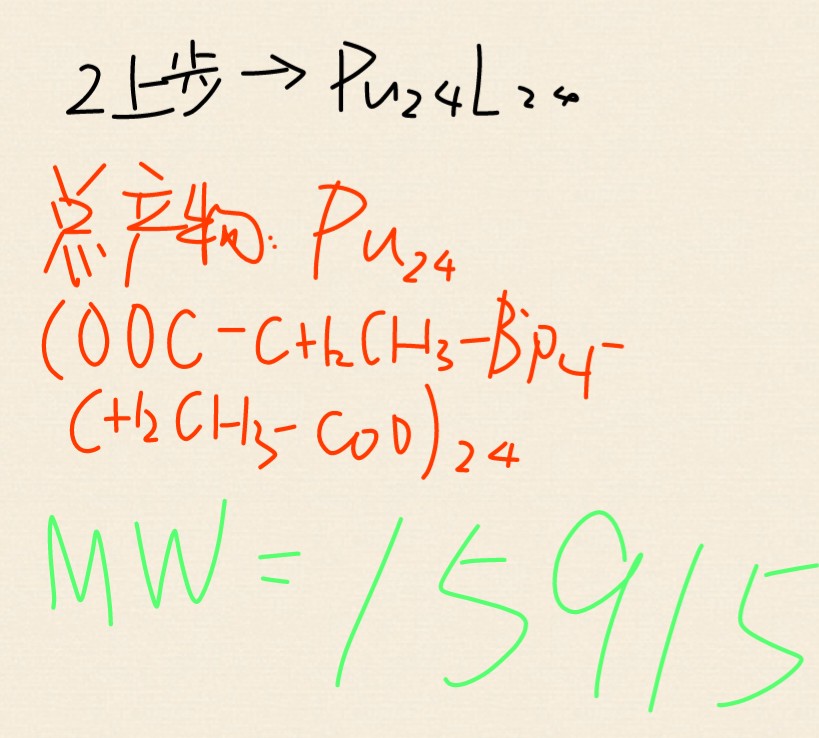 2上步→Pu₂₄L₂₄
总产物: Pu₂₄
(OOC-CH₂CH₃-Bipy-
CH₂CH₃-COO)₂₄
MW=15915